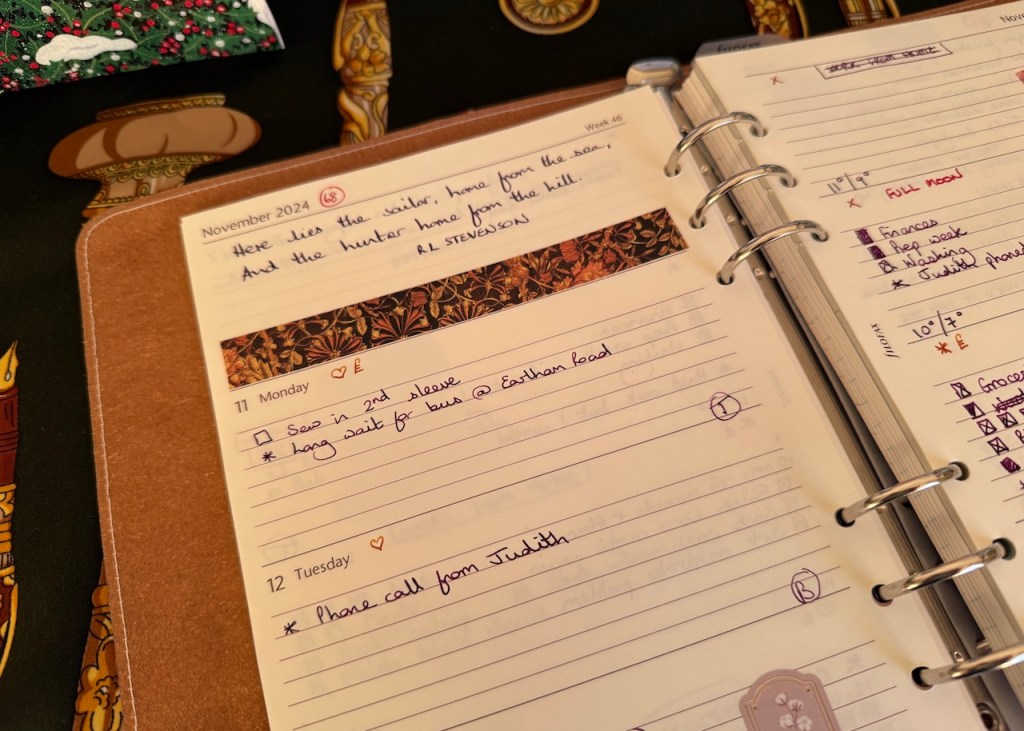 Week 46
November 2024 68
Here lies the sailor, home from the sea,
And the hunter home from the hill.
RL STEVENSON
11 Monday £
Sew in 2nd sleeve
* Long wait for bus @ Eartham Road
I
12 Tuesday
* Phone call from Judith
B
WORK FROM HOME
x
11° / 9°
x FULL MOON
Finances
Prep week
Washing
* Judith phone
10° / 7°
* £
Groce